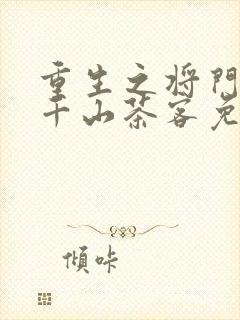 重生之将门
千山茶客免
倾哢